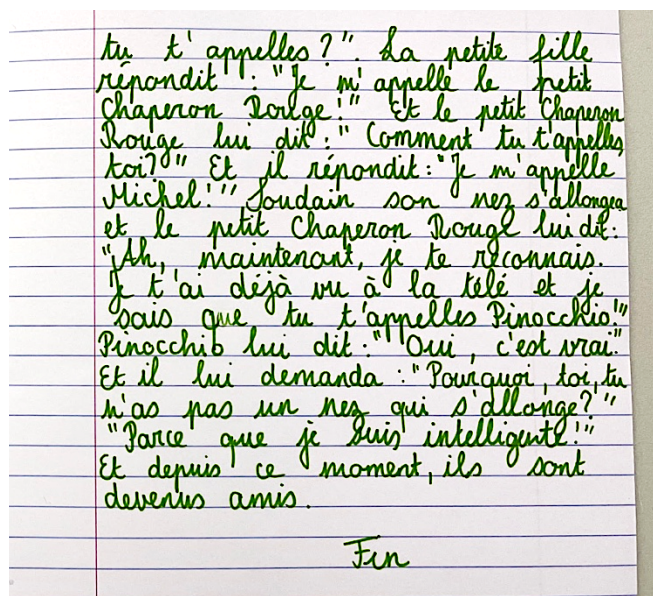 tu t'appelles ?". La petite fille
répondit : "Je m'appelle le petit
Chaperon Rouge !" Et le petit Chaperon
Rouge lui dit : " Comment tu t'appelles
toi ?" Et il répondit : "Je m'appelle
Michel !" Soudain son nez s'allongea
et le petit Chaperon Rouge lui dit :
"Ah, maintenant, je te reconnais.
Je t'ai déjà vu à la télé et je
sais que tu t'appelles Pinocchio !"
Pinocchio lui dit : "Oui, c'est vrai."
Et il lui demanda : "Pourquoi, toi, tu
n'as pas un nez qui s'allonge ?"
"Parce que je suis intelligente !"
Et depuis ce moment, ils sont
devenus amis.
Fin